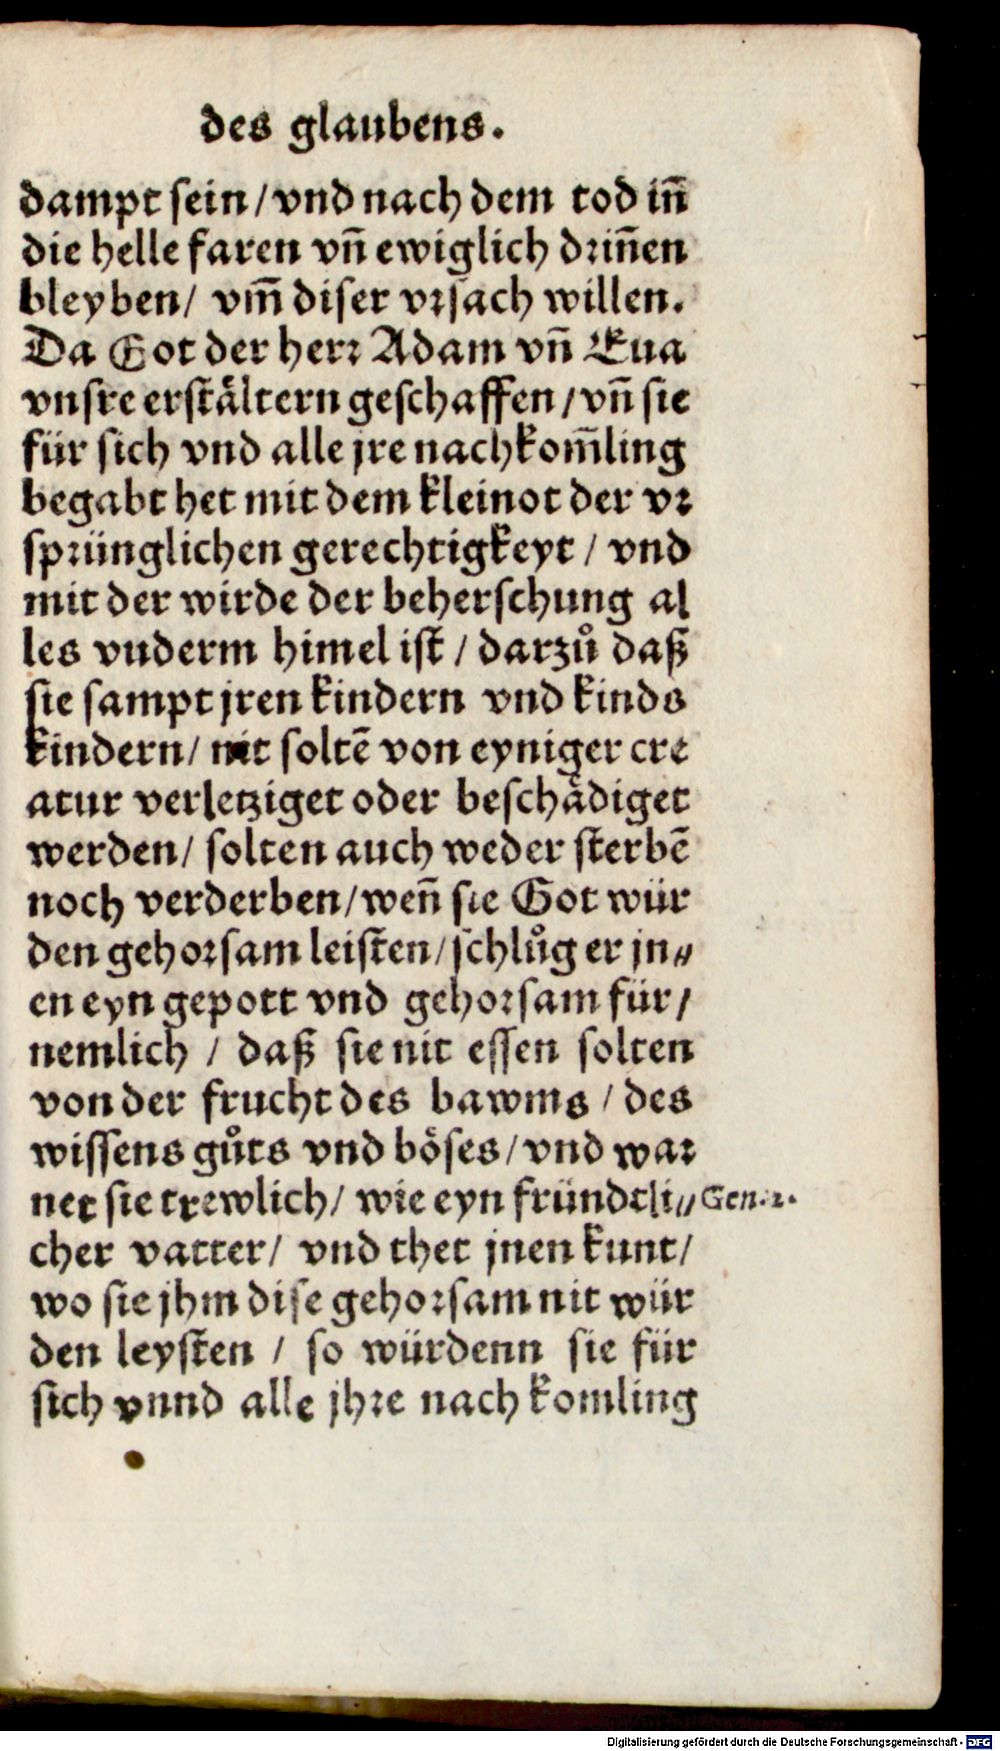 des glaubens.
dampt sein / vnd nach dem tod iñ
die helle faren vñ ewiglich driñen
bleyben / vm̃ diser vrsach willen.
Da Got der herr Adam vñ Eua
vnsre erstältern geschaffen / vñ sie
für sich vnd alle jre nachkom̃ling
begabt het mit dem kleinot der vr
sprünglichen gerechtigkeyt / vnd
mit der wirde der beherschung al
les vnderm himel ist / darzů daß
sie sampt jren kindern vnd kinds
kindern / nit soltẽ von eyniger cre
atur verletziget oder beschädiget
werden / solten auch weder sterbẽ
noch verderben / weñ sie Got wür
den gehorsam leisten / schlůg er jn⸗
en eyn gepott vnd gehorsam für /
nemlich / daß sie nit essen solten
von der frucht des bawms / des
wissens gůts vnd böses / vnd war
net sie trewlich / wie eyn fründtli⸗ Gen. 2.
cher vatter / vnd thet jnen kunt /
wo sie jhm dise gehorsam nit wür
den leysten / so würdenn sie für
sich vnnd alle jhre nachkomling
Digitalisierung gefördert durch die Deutsche Forschungsgemeinschaft - DFG